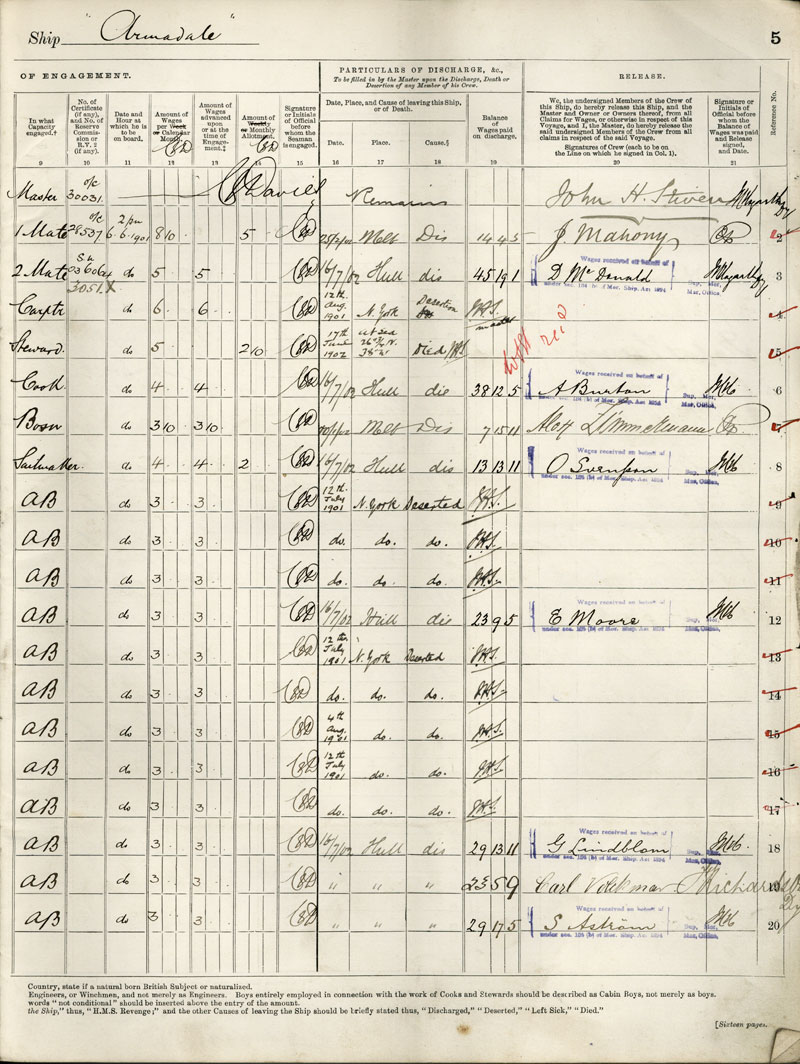 Ship "Armadale" 5
OF ENGAGEMENT. PARTICULARS OF DISCHARGE, &c., RELEASE.
To be filled in by the Master upon the Discharge, Death or Desertion of any Member of his Crew.
In what Capacity engaged.† No. of Certificate (if any), and No. of Reserve Commission or R.V. 2 (if any). Date and Hour at which he is to be on board. Amount of Wages per Week or Calendar Month. Amount of Wages advanced upon or at the time of Engagement.‡ Amount of Weekly or Monthly Allotment. Signature or Initials of Official before whom the Seaman is engaged. Date, Place, and Cause of leaving this Ship, or of Death. Date. Place. Cause.§ Balance of Wages paid on discharge. We, the undersigned Members of the Crew of this Ship, do hereby release this Ship, and the Master and Owner or Owners thereof, from all Claims for Wages, or otherwise in respect of this Voyage, and I, the Master, do hereby release the said undersigned Members of the Crew from all claims in respect of the said Voyage. Signatures of Crew (each to be on the Line on which he signed in Col. 1). Signature or Initials of Official before whom the Balance of Wages was paid and Release signed, and Date. Reference No.
9 10 11 12 13 14 15 16 17 18 19 20 21
Master o/c 30031 Remains John H. Stiven
1 Mate o/c 28537 2 pm 6.6.1901 8 10 5 Melt Dis 14 4 5 J. Mahony 2
2 Mate do 5 5 16/7/02 Hull dis 45 19 1 D McDonald 3
Wages received on behalf of
under sec. 184 (b) of Mer. Ship. Act 1894 Sup. Mer. Mar. Office.
Carptr do 6 6 12th Aug. 1901 N. York Desertion J.H.S. master 4
Steward. do 5 2 10 17th June 1902 at sea Died J.H.S. 5
Cook do 4 4 16/7/02 Hull dis 38 12 5 A Burton 6
Wages received on behalf of
under sec. 184 (b) of Mer. Ship. Act 1894 Sup. Mer. Mar. Office.
Bosn do 3 10 3 10 Melt Dis 7 15 11 7
Sailmaker do 4 4 2 16/7/02 Hull dis 13 13 11 O Svensson 8
Wages received on behalf of
under sec. 184 (b) of Mer. Ship. Act 1894 Sup. Mer. Mar. Office.
AB do 3 3 12th July 1901 N. York Deserted J.H.S. 9
AB do 3 3 do. do. do. J.H.S. 10
AB do 3 3 do. do. do. J.H.S. 11
AB do 3 3 16/7/02 Hull dis 23 9 5 E Moore 12
Wages received on behalf of
under sec. 184 (b) of Mer. Ship. Act 1894 Sup. Mer. Mar. Office.
AB do 3 3 12th July 1901 N. York Deserted J.H.S. 13
AB do 3 3 do. do. do. J.H.S. 14
AB do 3 3 4th Aug. 1901 do. do. J.H.S. 15
AB do 3 3 12th July 1901 do. do. J.H.S. 16
AB do 3 3 do. do. do. J.H.S. 17
AB do 3 3 16/7/02 Hull dis 29 13 11 G Lindblom 18
Wages received on behalf of
under sec. 184 (b) of Mer. Ship. Act 1894 Sup. Mer. Mar. Office.
AB do 3 3 " " " 23 5 9 Carl Volckmar 19
AB do 3 3 " " " 29 17 5 S Aström 20
Wages received on behalf of
under sec. 184 (b) of Mer. Ship. Act 1894 Sup. Mer. Mar. Office.
Country, state if a natural born British Subject or naturalized.
Engineers, or Winchmen, and not merely as Engineers. Boys entirely employed in connection with the work of Cooks and Stewards should be described as Cabin Boys, not merely as boys.
words "not conditional" should be inserted above the entry of the amount.
the Ship," thus, "H.M.S. Revenge;" and the other Causes of leaving the Ship should be briefly stated thus, "Discharged," "Deserted," "Left Sick," "Died."
[Sixteen pages.